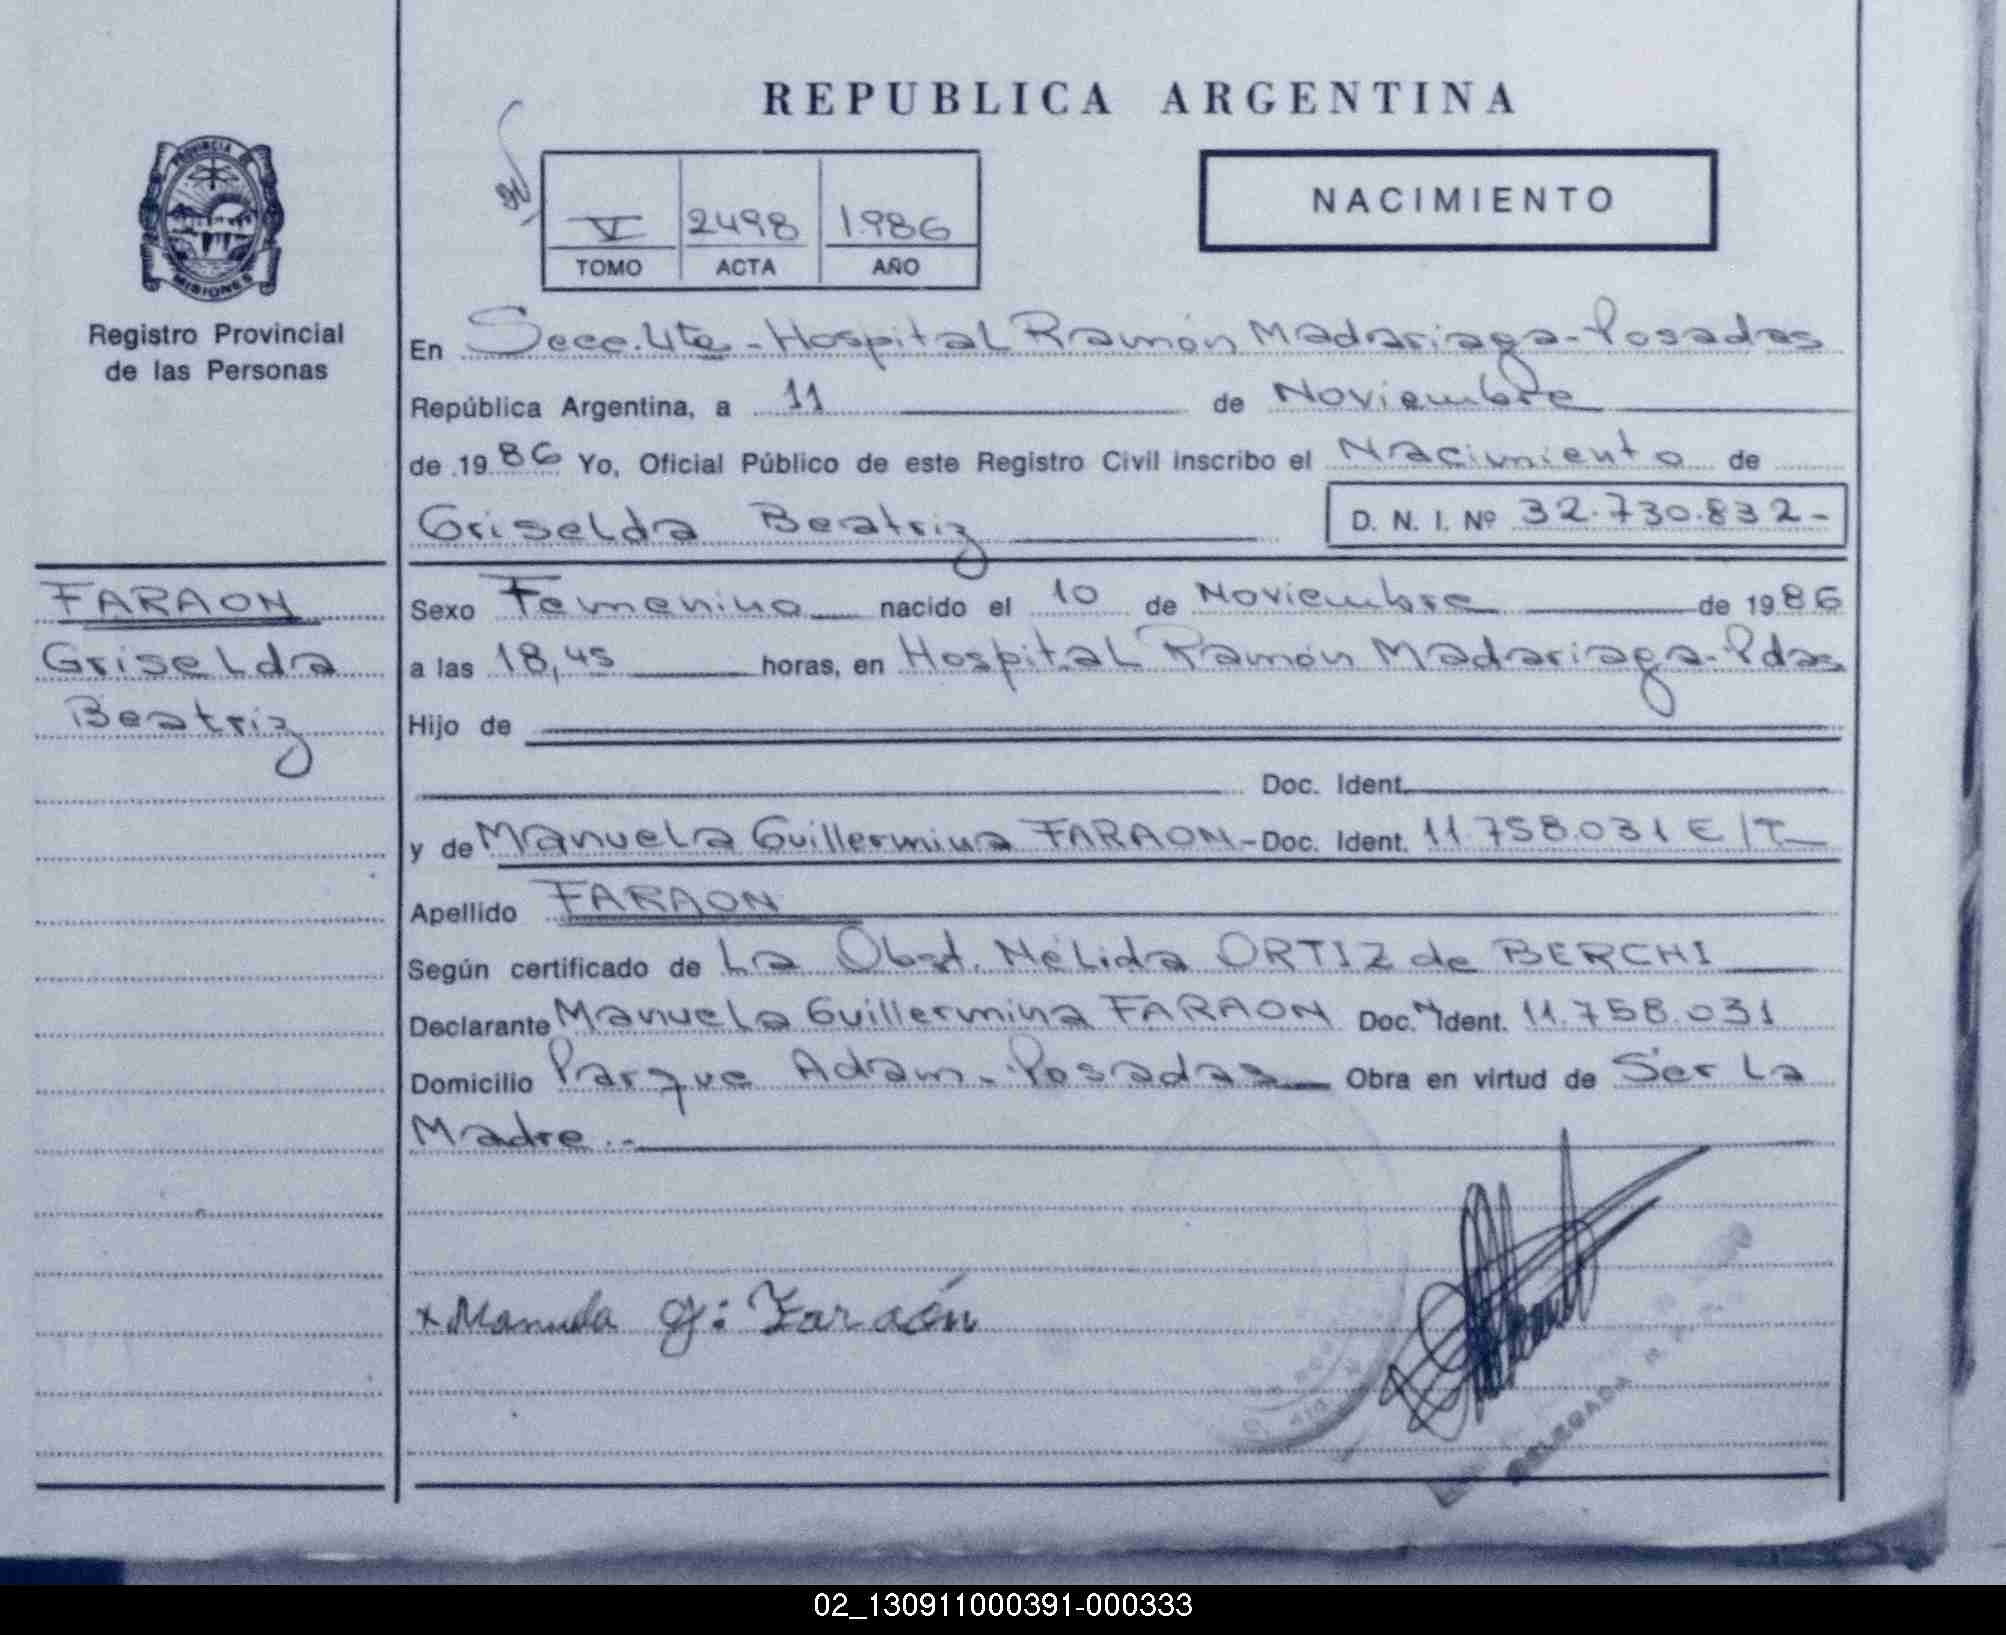 REPUBLICA ARGENTINA
PROVINCIA DE
MISIONES
Registro Provincial
de las Personas
V 2498 1.986
TOMO ACTA AÑO
NACIMIENTO
En Secc. 4ta - Hospital Ramón Madariaga - Posadas
República Argentina, a 11 de Noviembre
de 1986 Yo, Oficial Público de este Registro Civil inscribo el Nacimiento de
Griselda Beatriz D. N. I. Nº 32.730.832-
FARAON
Griselda
Beatriz
Sexo Femenino nacido el 10 de Noviembre de 1986
a las 18,45 horas, en Hospital Ramón Madariaga - Pdas
Hijo de
Doc. Ident.
y de Manuela Guillermina FARAON - Doc. Ident. 11.758.031 E/T
Apellido FARAON
Según certificado de La Obst. Nélida ORTIZ de BERCHI
Declarante Manuela Guillermina FARAON Doc. Ident. 11.758.031
Domicilio Parque Adam - Posadas Obra en virtud de Ser La
Madre.-
x Manuela G: Faraón
DELEGADA
02_130911000391-000333